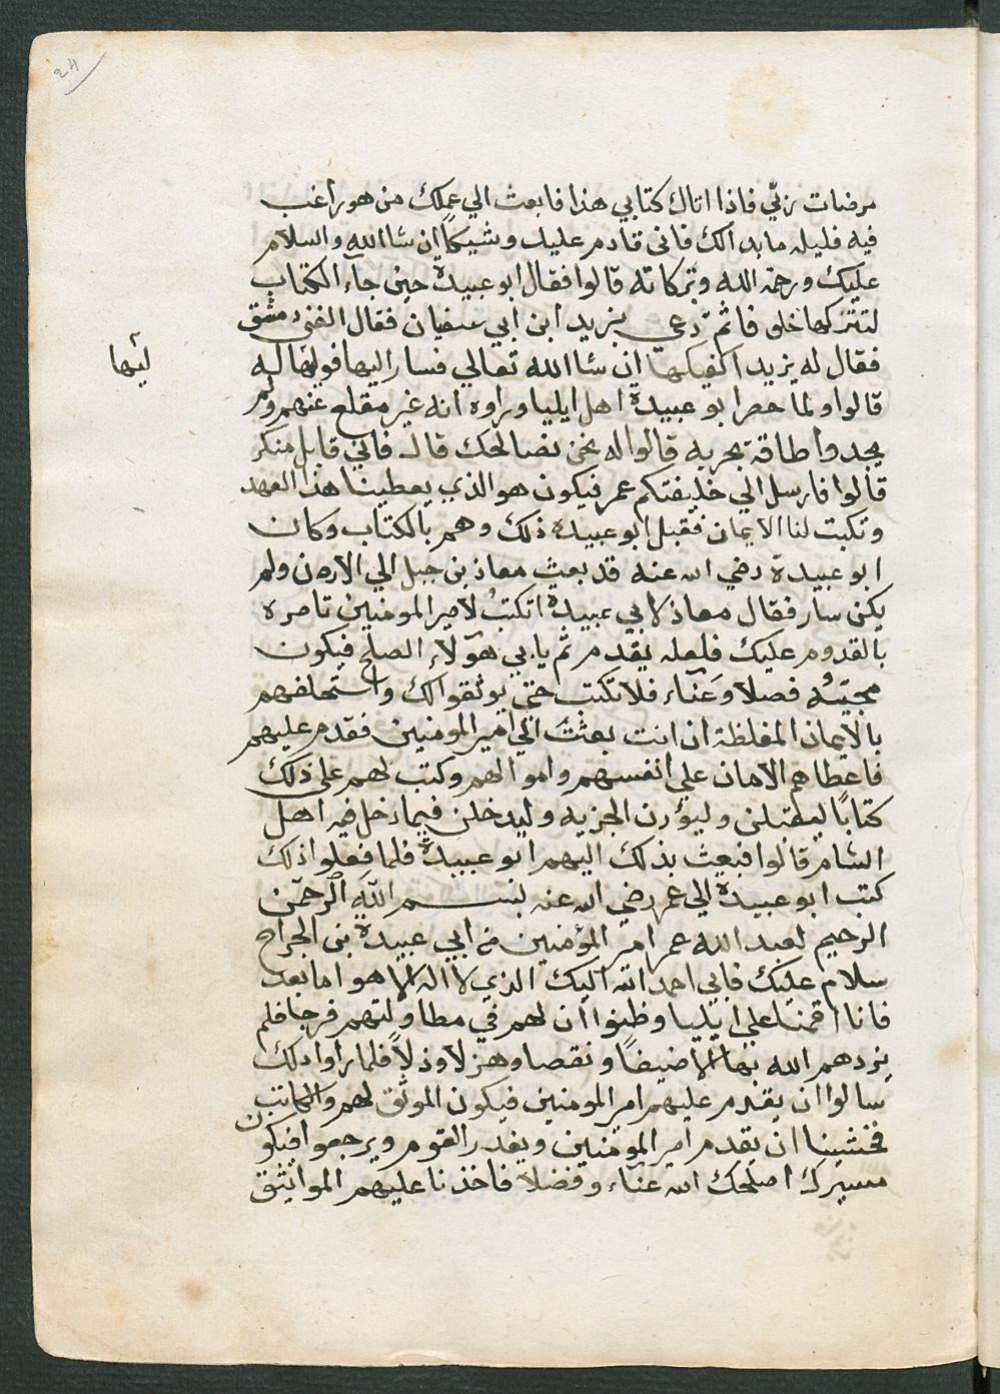 مرضات ربّي فاذا اتاك كتابي هذا فابعث الي عملك من هو راغب
فيه فليله ما بدالك فانى قادم عليك وشيكاً ان شا الله والسلام
عليك ورحمة الله وبركاته قالوا فقال ابو عبيدة حين جاء الكتاب
لتتركها خلى فا ثمّ دعى بزيد ابن ابي سفيان فقال الفنى دمشق
فقال له يزيد اكفيكها ان شا الله تعالي فسار اليها فوليها له
ليها
قالوا ولما حصر ابو عبيدة اهل ايليا وراوه انه غير مقلع عنهم ولم
يجدوا طاقة بحربه قالوا له نحن نصالحك قال فاني قابل منكم
قالوا فارسل الي خليفتكم عمر فيكون هو الذي يعطينا هذا العهد
وتكبت لنا الايمان فقبل ابو عبيدة ذلك وهم بالكتاب وكان
ابو عبيدة رضي الله عنه قد بعث معاذ بن جبل الي الاردن ولم
يكن سار فقال معاذ لابي عبيدة اتكتب لامير المومنين تامره
بالقدوم عليك فلعله يقدم ثم يابي هولاء الصلح فيكون
مجيئه فصلا وعناء فلا تكتب حتى يوثقوا لك واستحلفهم
بالايمان المغلظة ان انت بعثت الي امير المومنين فقدم عليهم
فاعطاهم الامان علي انفسهم واموالهم وكتب لهم على ذلك
كتابًا ليقبلن وليؤدن الجزيه وليدخلن فيما دخل فيه اهل
الشام قالوا فبعث بذلك اليهم ابو عبيدة فلما فعلوا ذلك
كتب ابو عبيدة الي عمر رضي الله عنه بسم الله الرحمن
الرحيم لعبد الله عمر امير المؤمنين من ابي عبيدة بن الجراح
سلام عليك فاني احمد الله اليك الذي لا اله الا هو اما بعد
فانا اقمنا علي ايليا وظنوا ان لهم في مطاولتهم فرجا فلم
يزدهم الله بها الا ضيقاً ونقصا وهزلا وذلاً فلما راوا ذلك
سالوا ان يقدم عليهم امير المومنين فيكون الموثق لهم والكاتب
فخشينا ان يقدم امير المومنين ويغدر القوم ويرجعوا فيكون
مسيرك اصلحك الله عناء وفضلا فاخذنا عليهم المواثيق